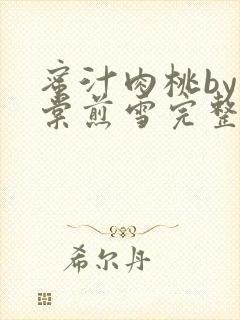 蜜汁肉桃by
棠煎雪完整
希尔丹